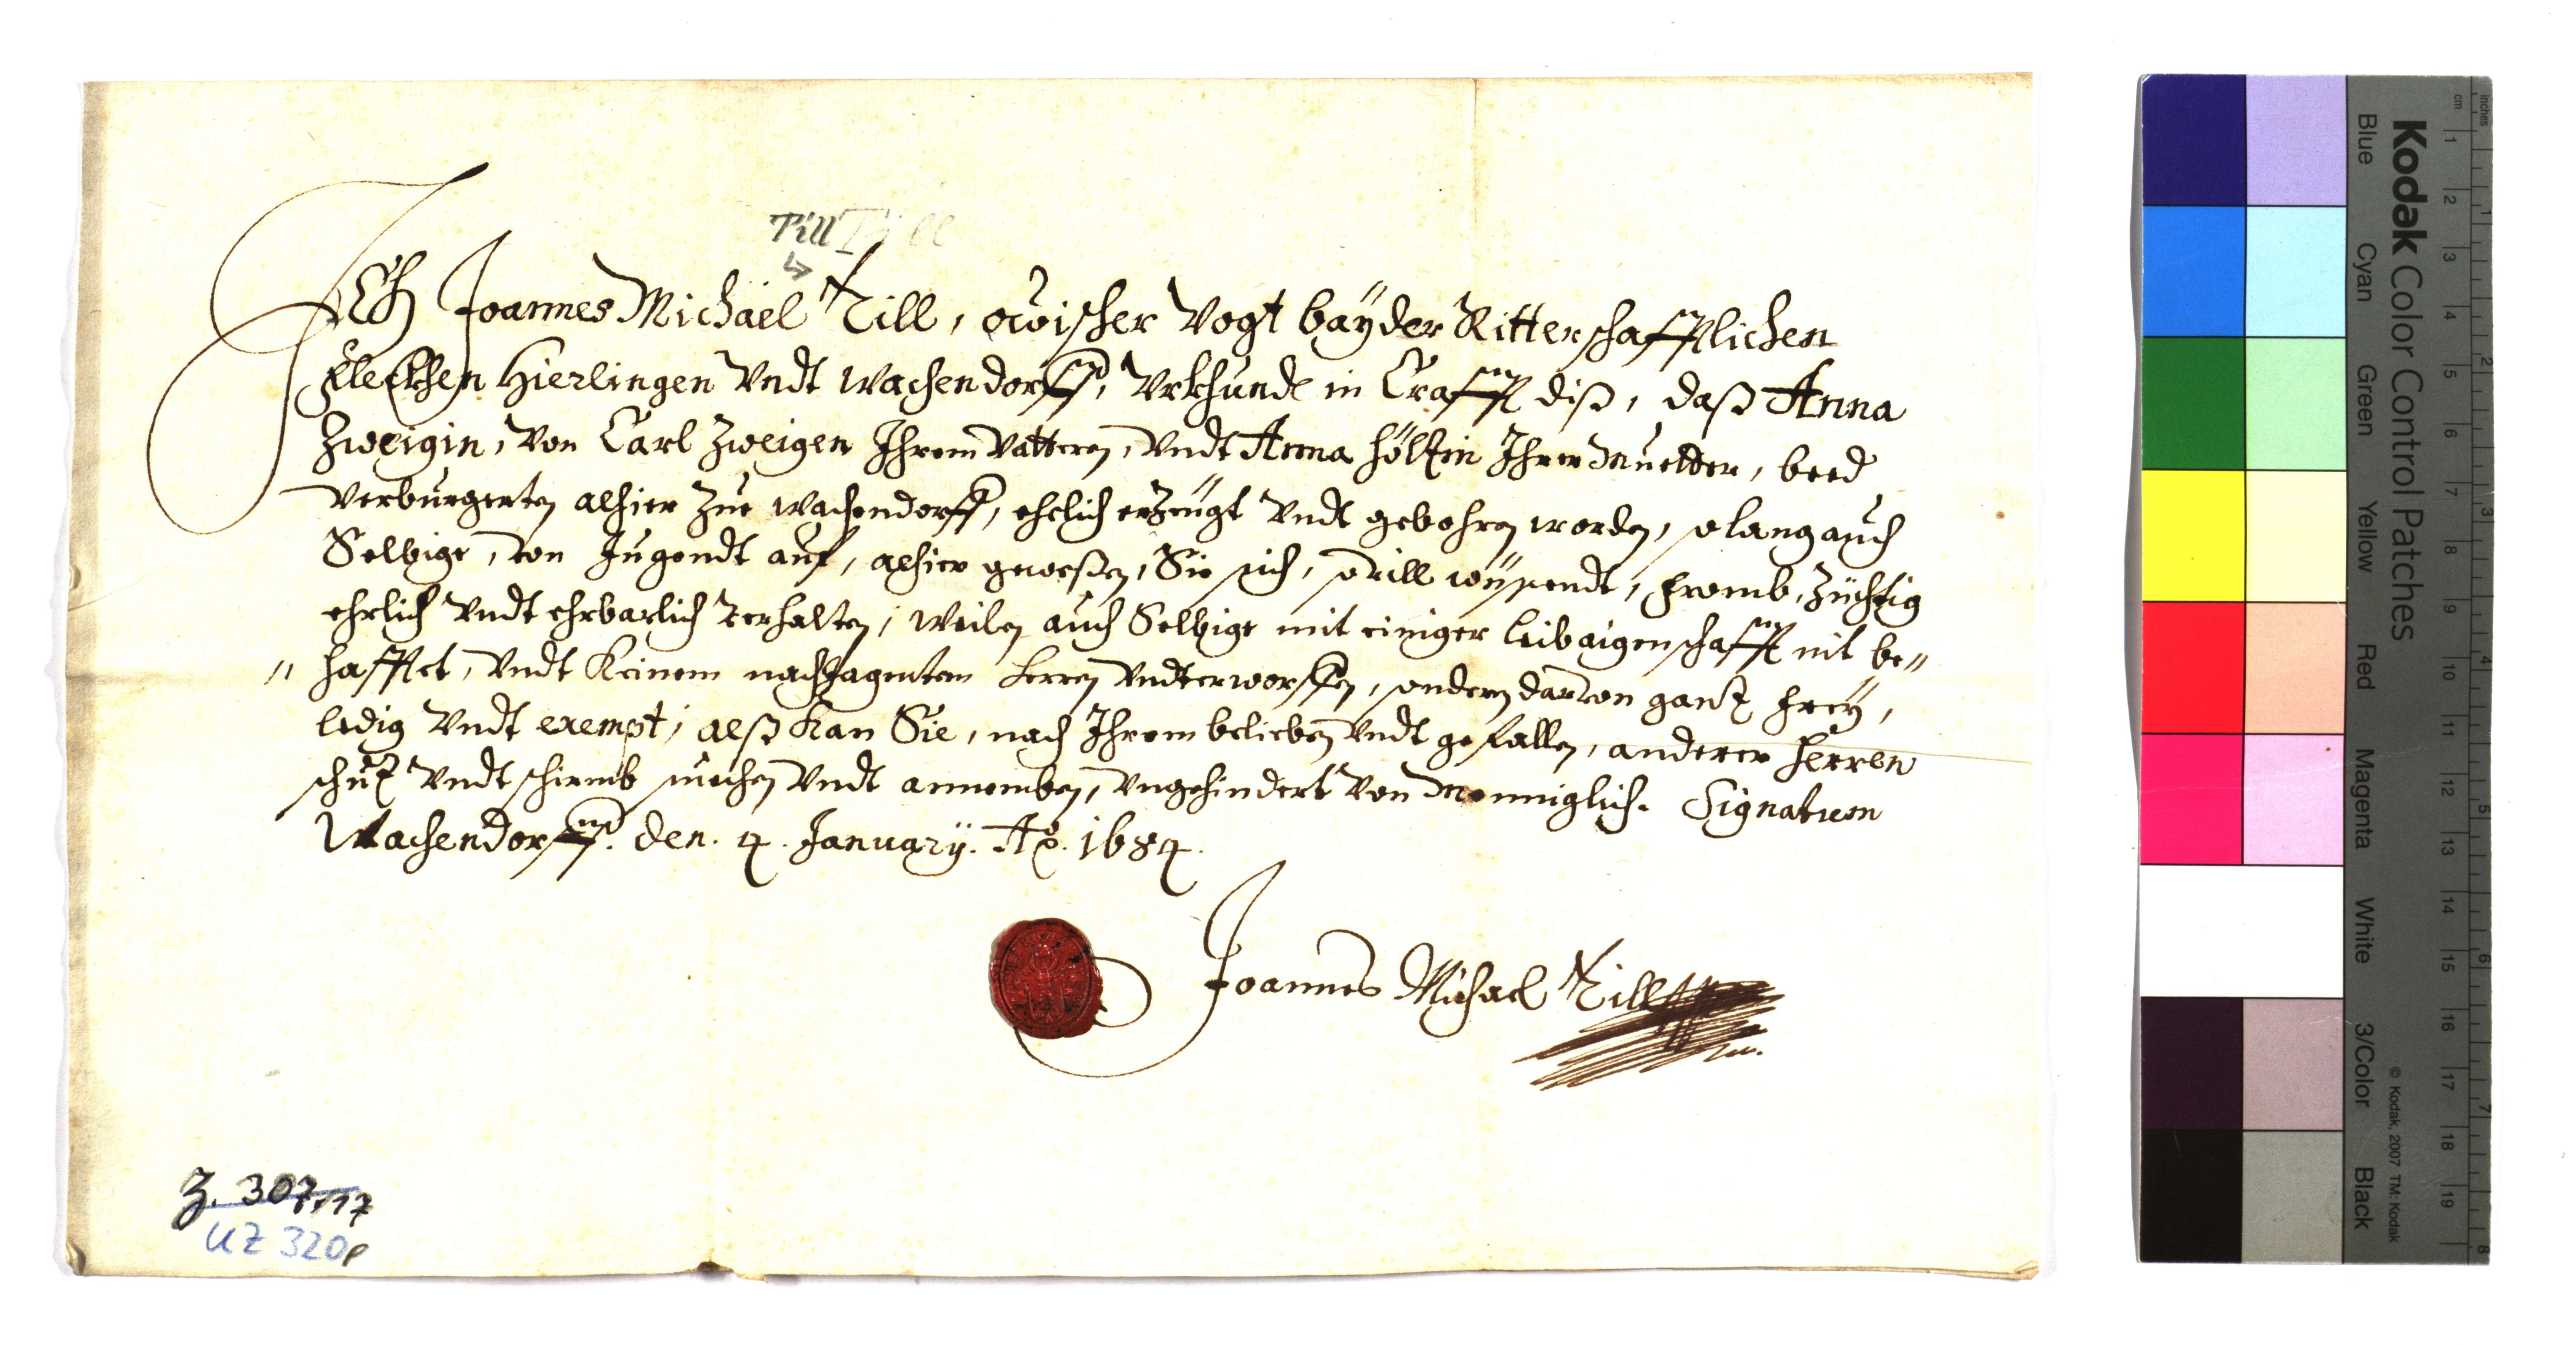 Till Till
Ich Joannes Michäel Till, owischer Vogt bayder Ritterschafftlichen
Fleckhen Hierlingen Vndt Wachendorff, Vrkhunde in Crafft diß, daß Anna
Zweigin, Von Carl Zweigen Ihrem Vatteren, Vndt Anna Hölzin Ihrer Muetter, beed
Verburgerten alhier Zue Wachendorff, ehelich erZeügt Vndt gebohren worden, so lang auch
Selbige, von Jugendt auf, alhier geweßen, Sie sich, souill wüssendt, fromb, Züchtig
ehrlich Vndt ehrbarlich verhalten, Weilen auch Selbige mit einiger Leibaigenschafft nit be"
" hafftet, Vndt Keinem nachJagenten Herren Vndterworffen, sondern darvon ganz freÿ,
ledig Vndt exempt, alß Kan Sie, nach Ihrem belieben Vndt gefallen, anderer Herren
schuz Vndt schirmb suechen Vndt annemben, Vngehindert Von Menniglich. Signatum
Wachendorff. den. 4. Januarÿ. Ao. 1684.
Joannes Michael Till
Z. 307,17
UZ 320e
Kodak Color Control Patches
Blue Cyan Green Yellow Red Magenta White 3/Color Black
© Kodak, 2007 TM: Kodak
inches 1 2 3 4 5 6 7 8
cm 1 2 3 4 5 6 7 8 9 10 11 12 13 14 15 16 17 18 19